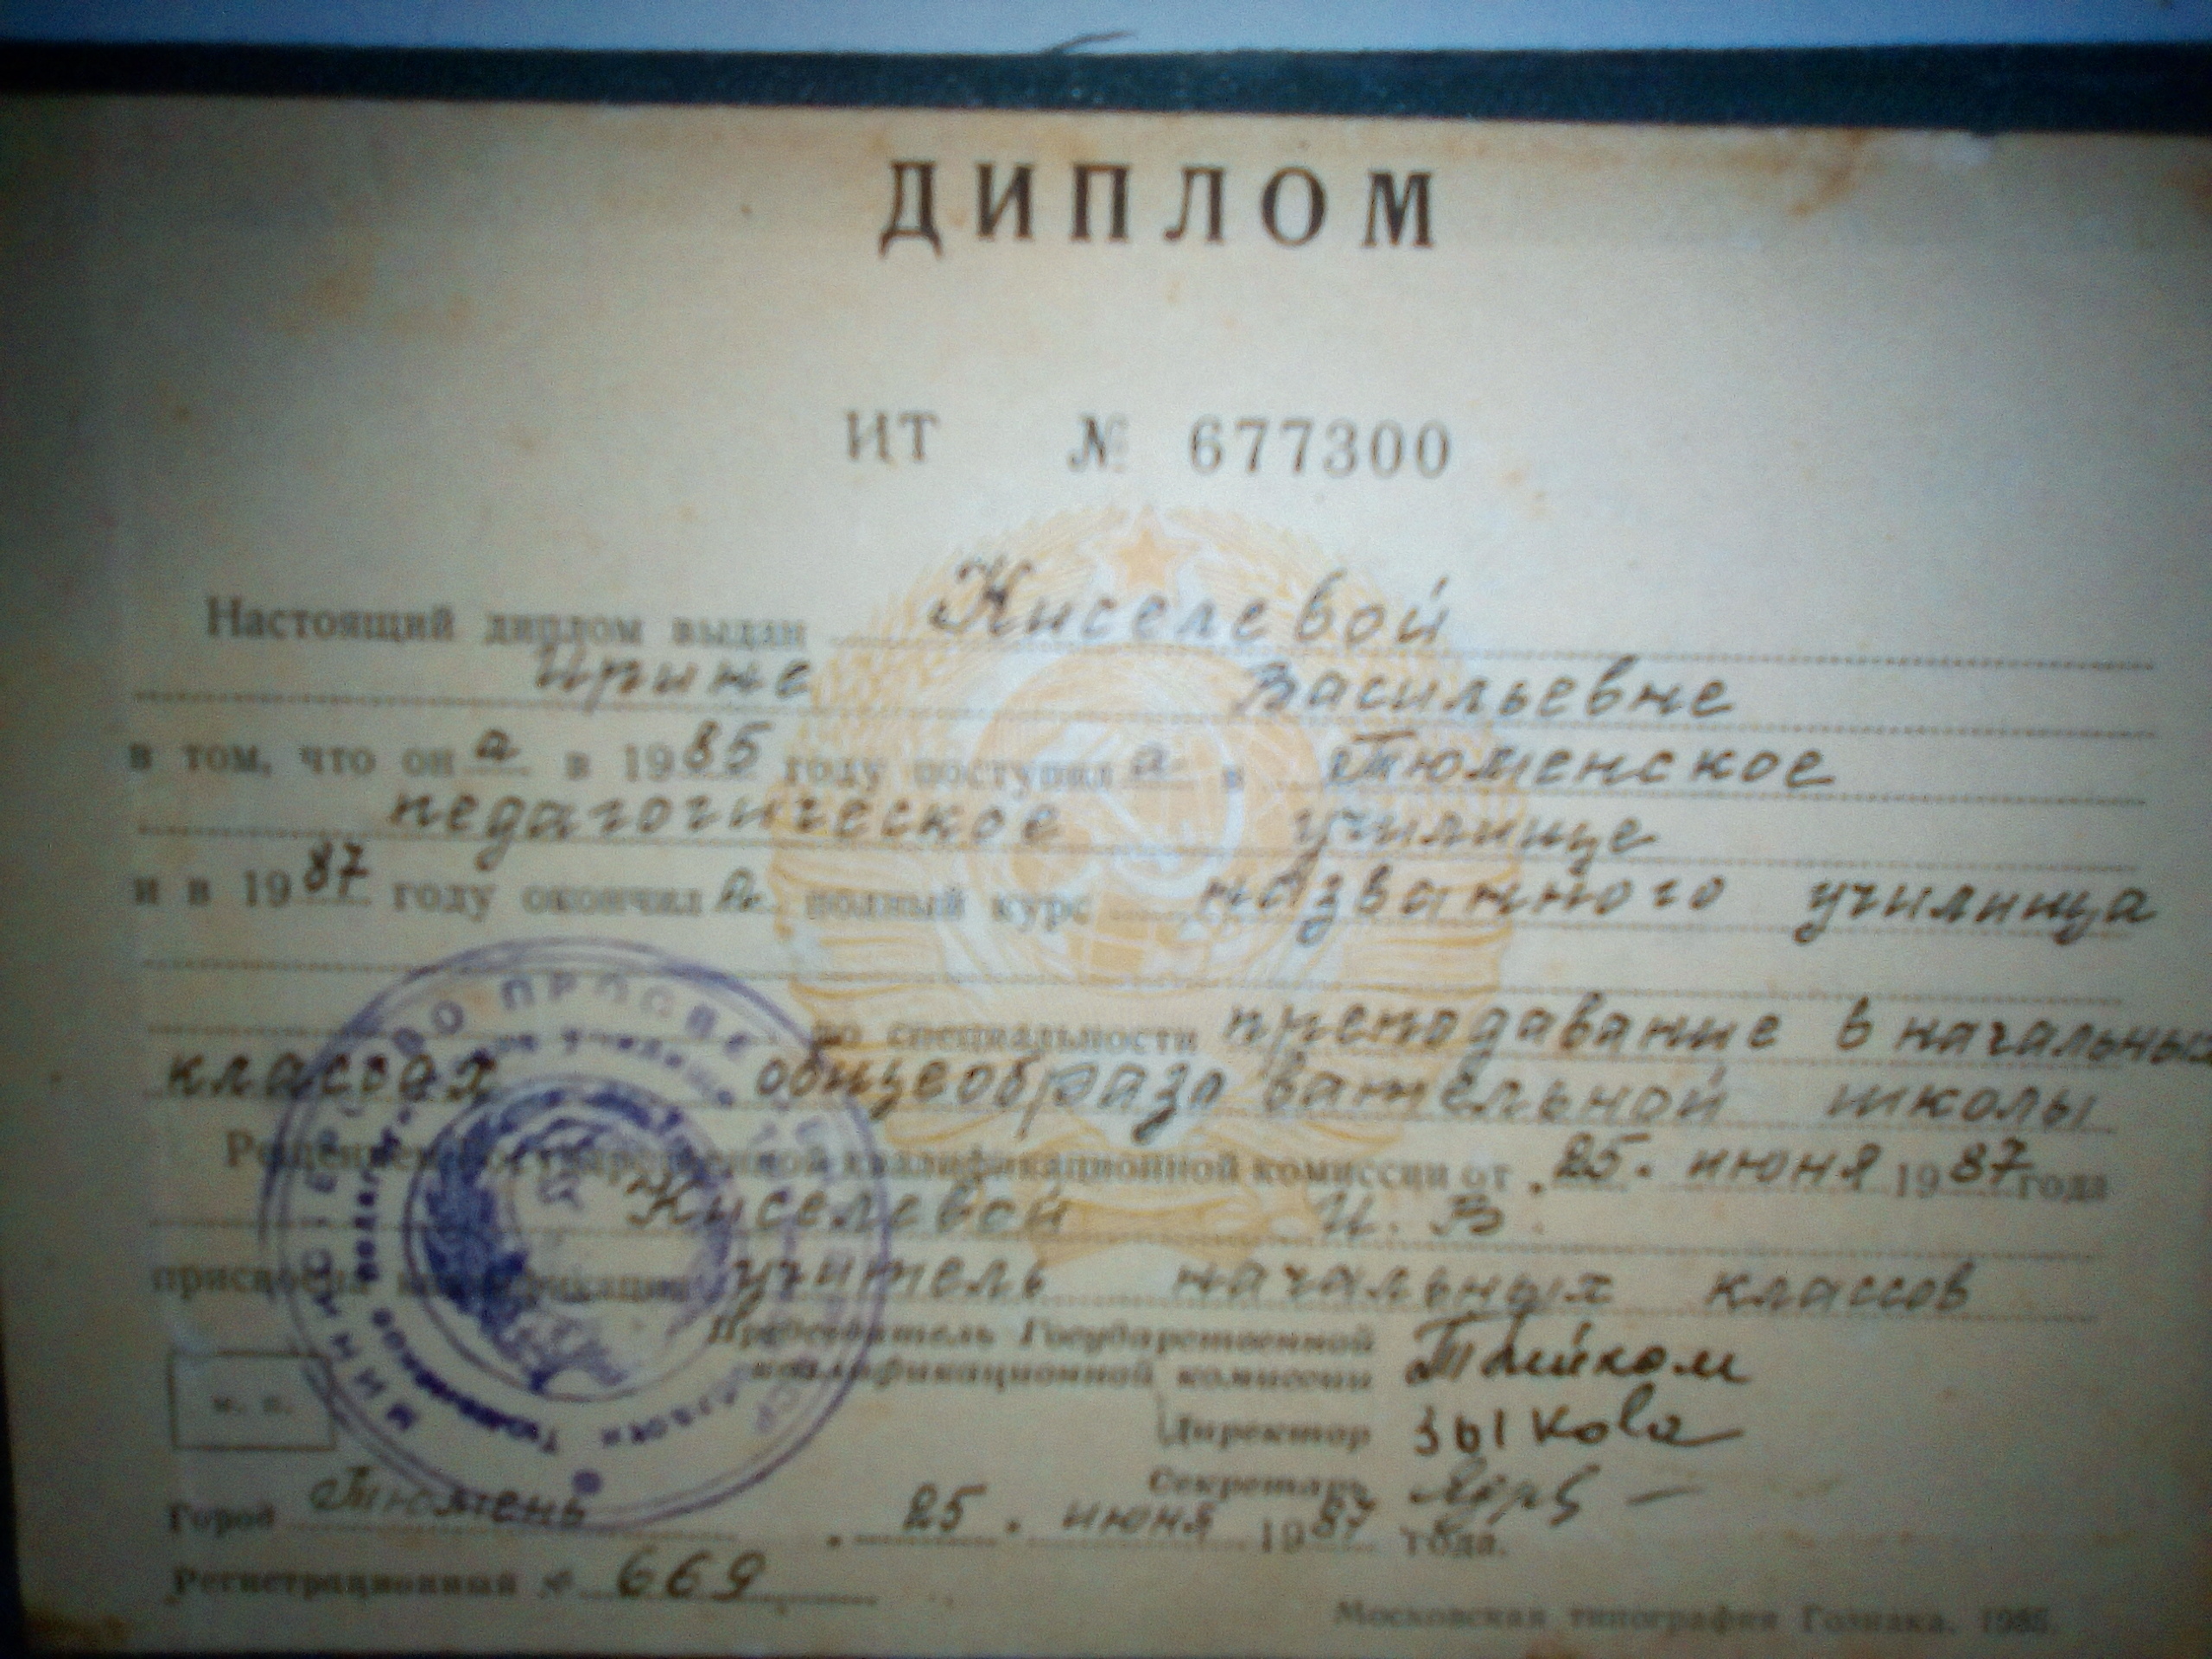 ДИПЛОМ
ИТ № 677300
Настоящий диплом выдан Киселевой
Ирине Васильевне
в том, что она в 1985 году поступила в Тюменское
педагогическое училище
и в 1987 году окончила полный курс названного училища
по специальности преподавание в начальных
классах общеобразовательной школы
Решением Государственной квалификационной комиссии от 25. июня 1987 года
Киселевой И. В.
присвоена квалификация учитель начальных классов
Председатель Государственной
квалификационной комиссии
Директор Зыкова
Секретарь
м. п.
Город Тюмень 25. июня 1987 года.
Регистрационный № 669
Московская типография Гознака.
МИНИСТЕРСТВО ПРОСВЕЩЕНИЯ РСФСР
Тюменское педагогическое училище